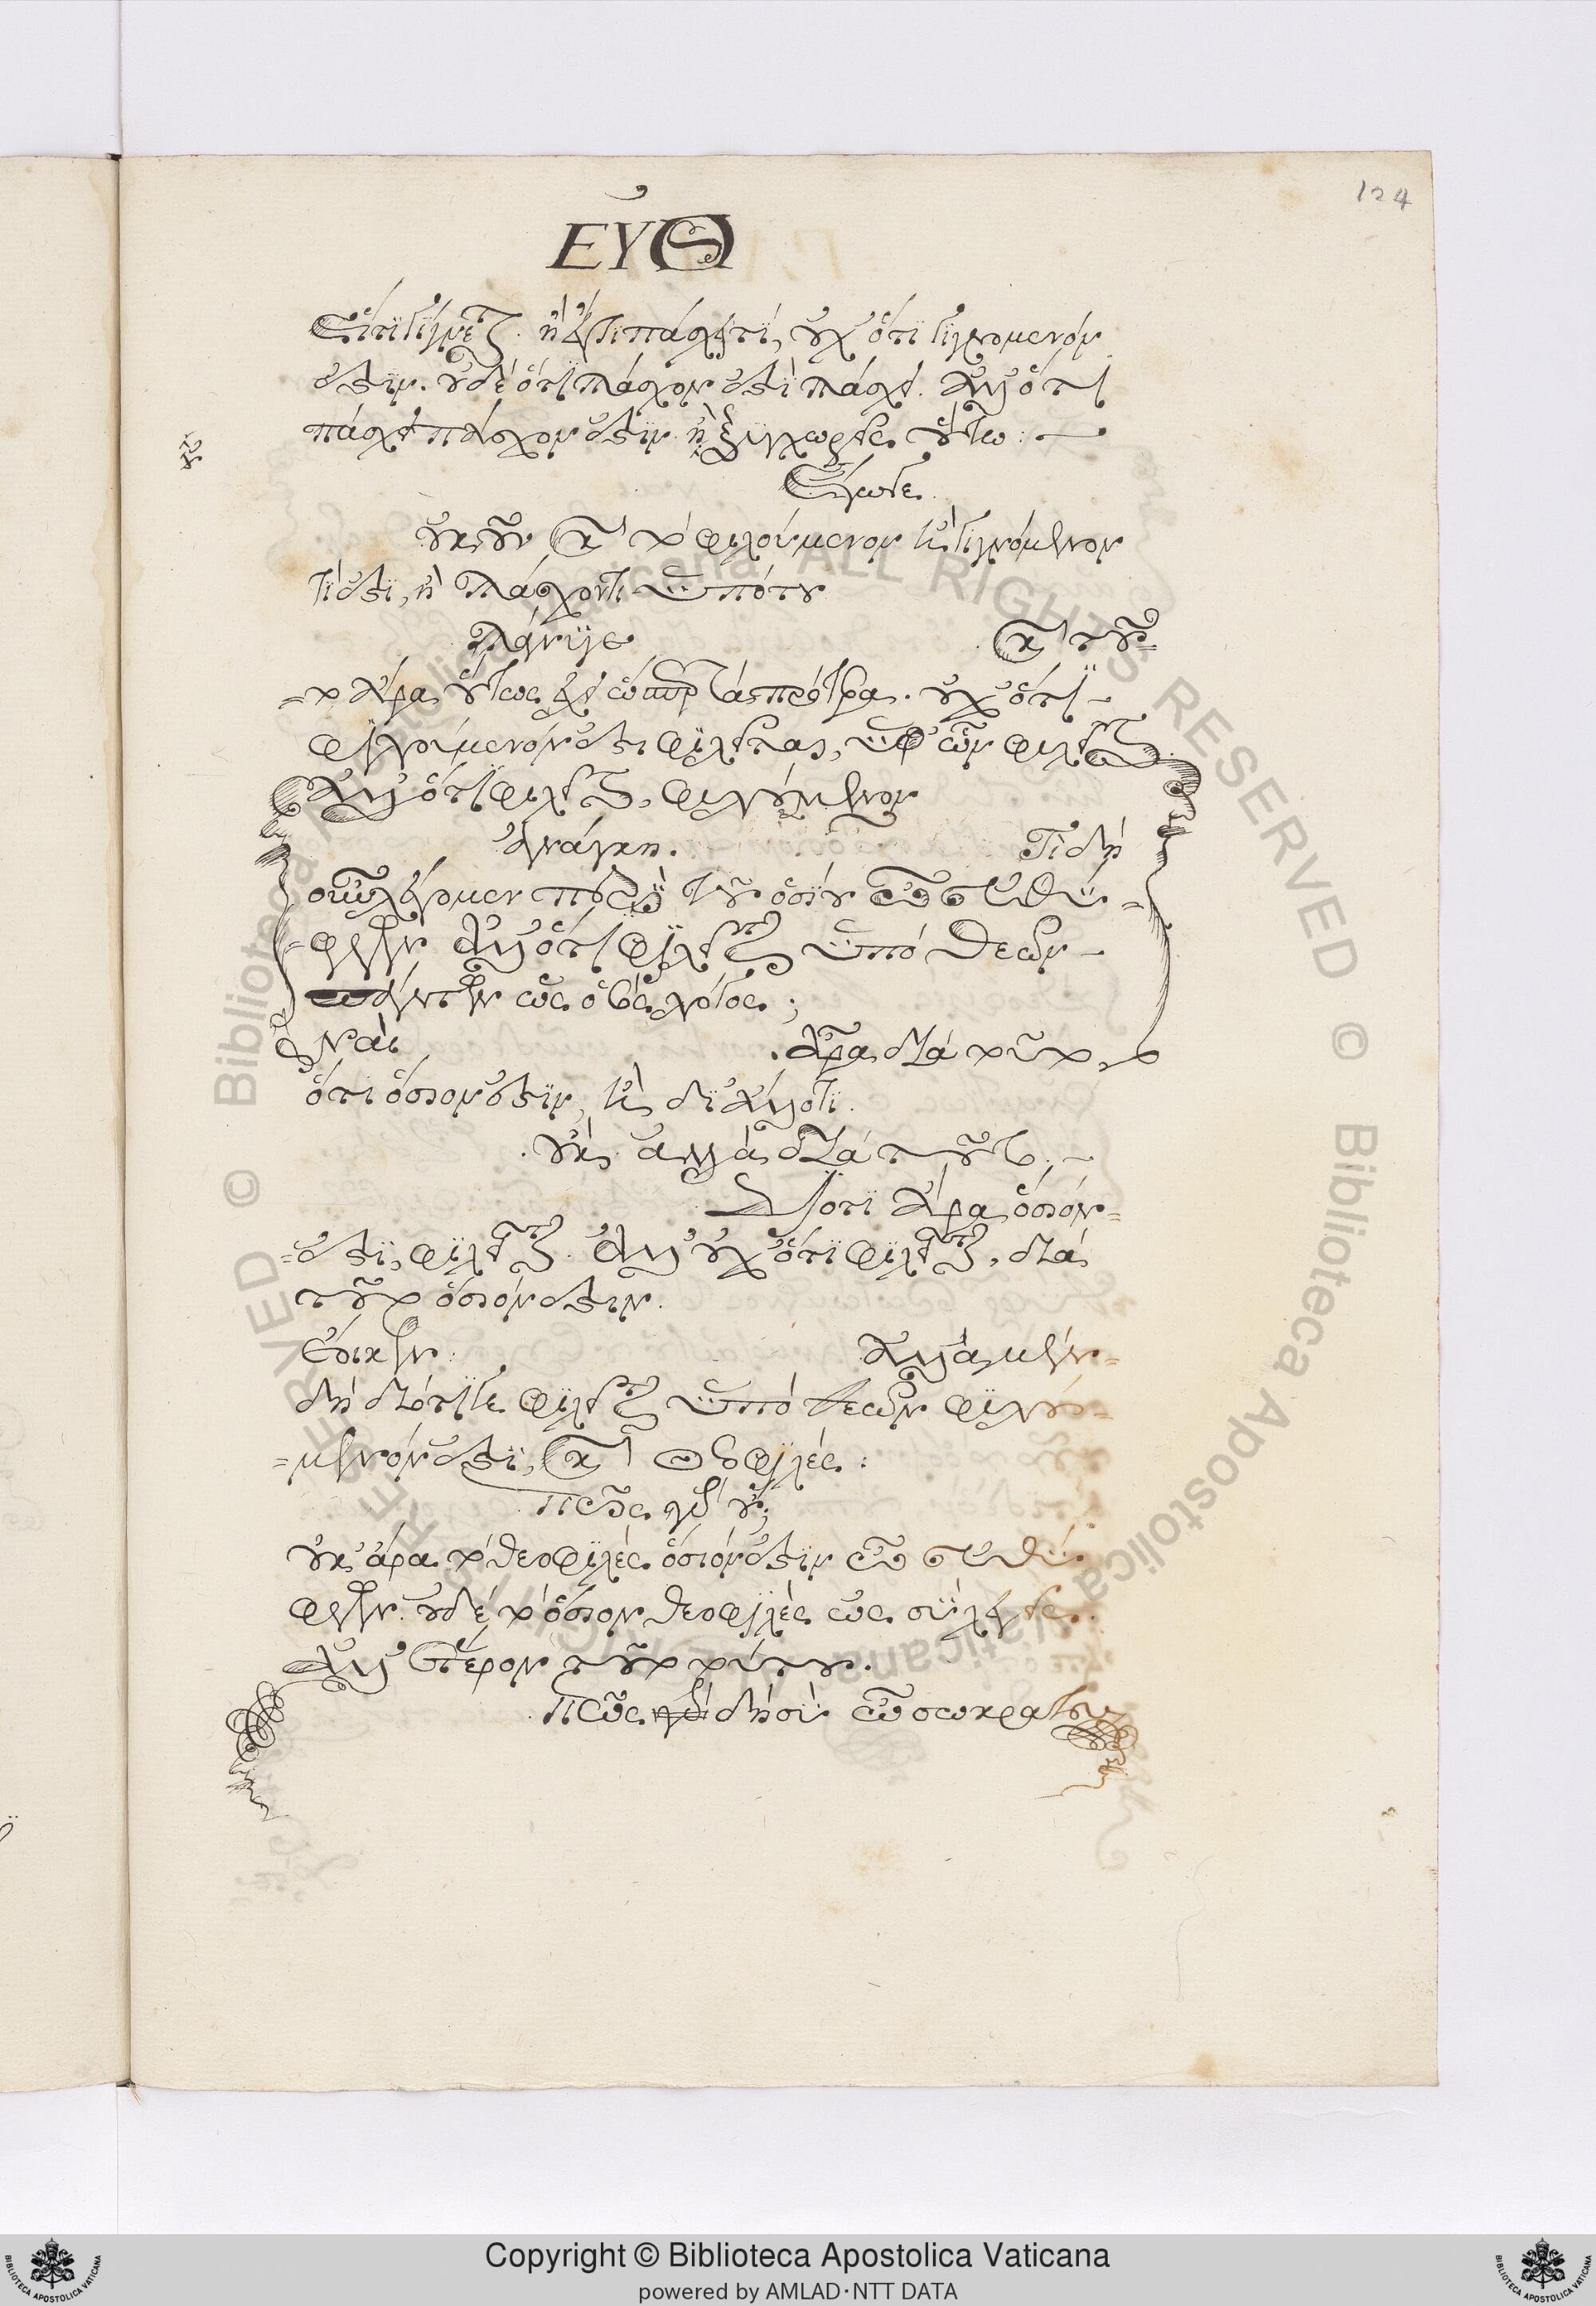 124
ΕΥΘ
εἴ τι γίγνεται. ἢ εἴ τι πάσχει τι, οὐχ ὅτι γιγνόμενόν
ἐστιν. οὐδὲ ὅτι πάσχον ἐστὶ πάσχει. ἀλλ' ὅτι
πάσχει πάσχον ἐστὶν. ἢ οὐ ξυγχωρεῖς οὕτω:
ἔγωγε.
οὐκοῦν καὶ τὸ φιλούμενον ἢ γιγνόμενον
τί ἐστι, ἢ πάσχον τι ὑπό του
πάνυ γε καὶ τοῦ-
-το ἄρα οὕτως ἔχει ὥσπερ τὰ πρότερα. οὐχ ὅτι
φιλούμενόν ἐστι φιλεῖται, ὑφ' ὧν φιλεῖται
ἀλλ' ὅτι φιλεῖται, φιλούμενον
ἀνάγκη. Τί δὴ
οὖν λέγομεν περὶ τοῦ ὁσίου ὦ εὐθύ-
-φρον ἄλλο τι φιλεῖται ὑπὸ θεῶν
πάντων ὡς ὁ σὸς λόγος;
ναὶ ἆρα διὰ τοῦτο
ὅτι ὅσιον ἐστὶν, ἢ δι' ἄλλο τι.
οὔκ. ἀλλὰ διὰ τοῦτο.
Διότι ἄρα ὅσιόν
ἐστι, φιλεῖται. ἀλλ' οὐχ ὅτι φιλεῖται, διὰ
τοῦτο ὅσιόν ἐστιν.
ἔοικεν: ἀλλὰ μὲν
δὴ διότι γε φιλεῖται ὑπὸ θεῶν φιλού-
-μενόν ἐστι, καὶ θεοφιλές:
πῶς γὰρ οὔ;
οὐκ ἄρα τὸ θεοφιλές ὅσιόν ἐστιν ὦ εὐθύ
φρον. οὐδὲ τὸ ὅσιον θεοφιλὲς ὡς σὺ λέγεις.
ἀλλ' ἕτερον τοῦτο τούτου.
πῶς δὴ σὺ ὦ σώκρατες
Copyright © Biblioteca Apostolica Vaticana
powered by AMLAD·NTT DATA